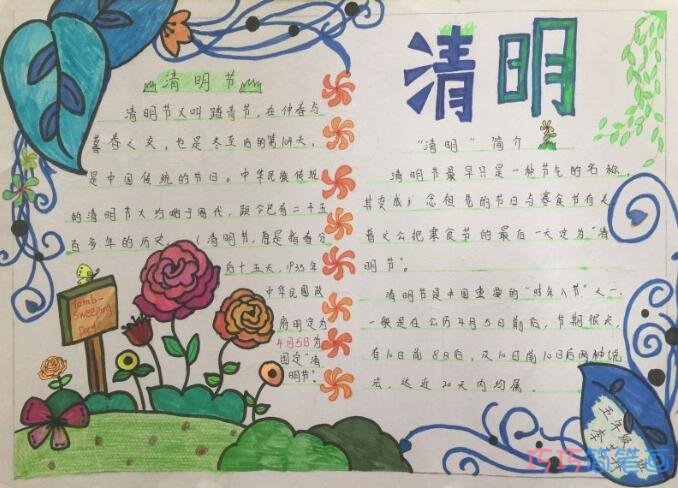 清明
清明节
清明节又叫踏青节，在仲春与
暮春之交，也是冬至后的第108天，
是中国传统的节日。中华民族传统
的清明节大约始于周代，距今已有二千五
百多年的历史。（清明节，原是指春分
后十五天，1935年
中华民国政
府明定为
4月5日为
固定"清
明节"。
Tomb-
Sweeping
Day
"清明"简介
清明节最早只是一种节气的名称，
其变成念的节日与寒食节有关
晋文公把寒食节的最后一天定为"清
明节"。
清明节是中国重要的"时年八节"之一，
一般是在公历4月5日前后，节期很长，
有10日前8日后，及10日前10日后两种说
法，达近20天内均属。
五年级
李
巧巧简笔画